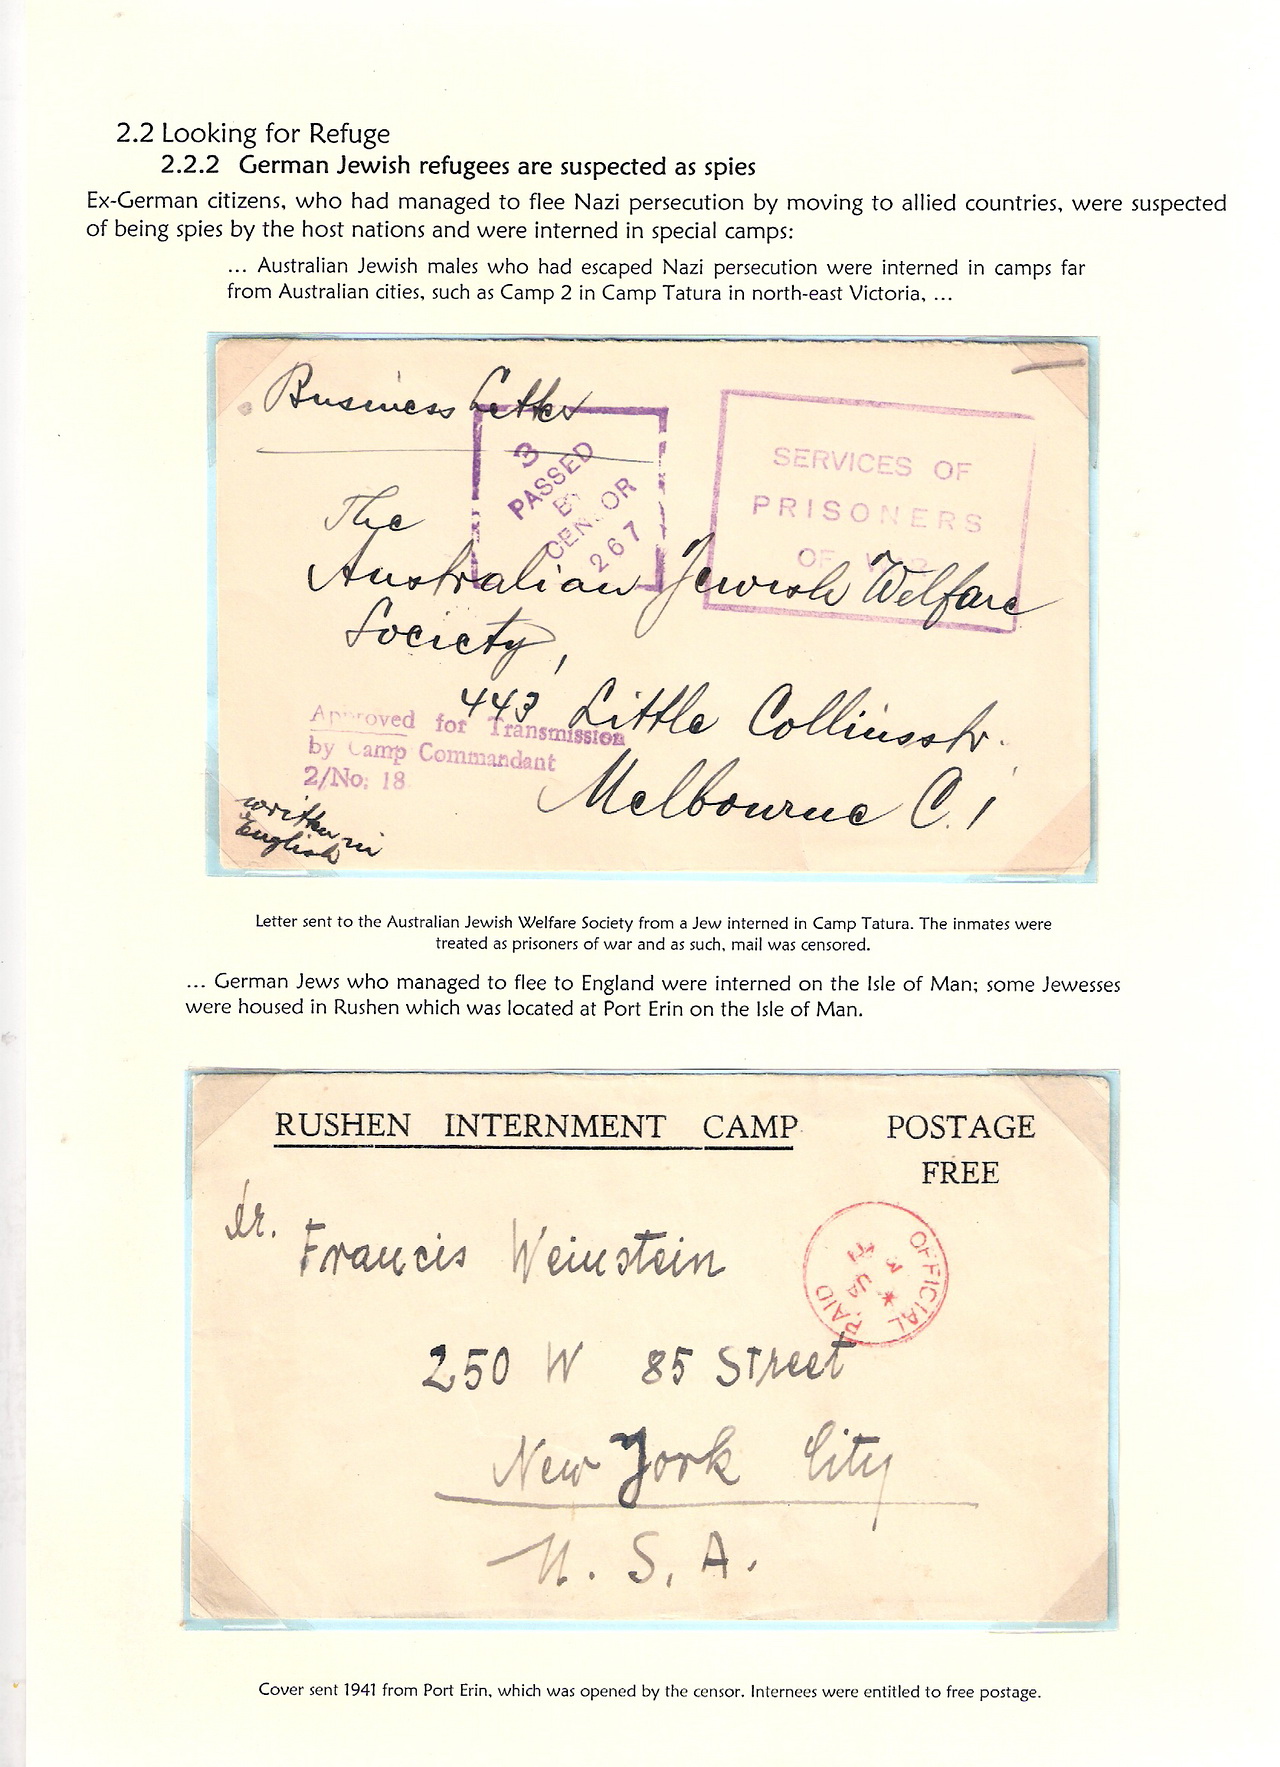 2.2 Looking for Refuge
2.2.2 German Jewish refugees are suspected as spies
Ex-German citizens, who had managed to flee Nazi persecution by moving to allied countries, were suspected
of being spies by the host nations and were interned in special camps:
... Australian Jewish males who had escaped Nazi persecution were interned in camps far
from Australian cities, such as Camp 2 in Camp Tatura in north-east Victoria, ...
Business Letter
3
PASSED
BY
CENSOR
267
SERVICES OF
PRISONERS
OF WAR
The
Australian Jewish Welfare
Society,
443 Little Collinsstr.
Melbourne C.1
Approved for Transmission
by Camp Commandant
2/No. 18
written in
English
Letter sent to the Australian Jewish Welfare Society from a Jew interned in Camp Tatura. The inmates were
treated as prisoners of war and as such, mail was censored.
... German Jews who managed to flee to England were interned on the Isle of Man; some Jewesses
were housed in Rushen which was located at Port Erin on the Isle of Man.
RUSHEN INTERNMENT CAMP POSTAGE
FREE
Dr. Francis Weinstein
250 W 85 Street
New York City
U. S. A.
OFFICIAL PAID
3 JA 41
Cover sent 1941 from Port Erin, which was opened by the censor. Internees were entitled to free postage.